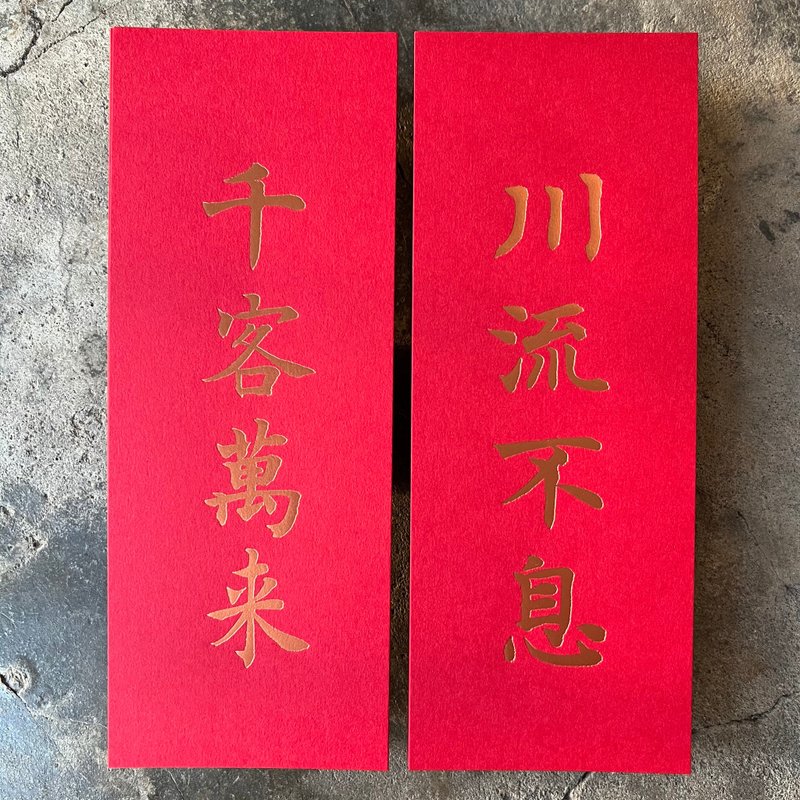 千客萬来
川流不息